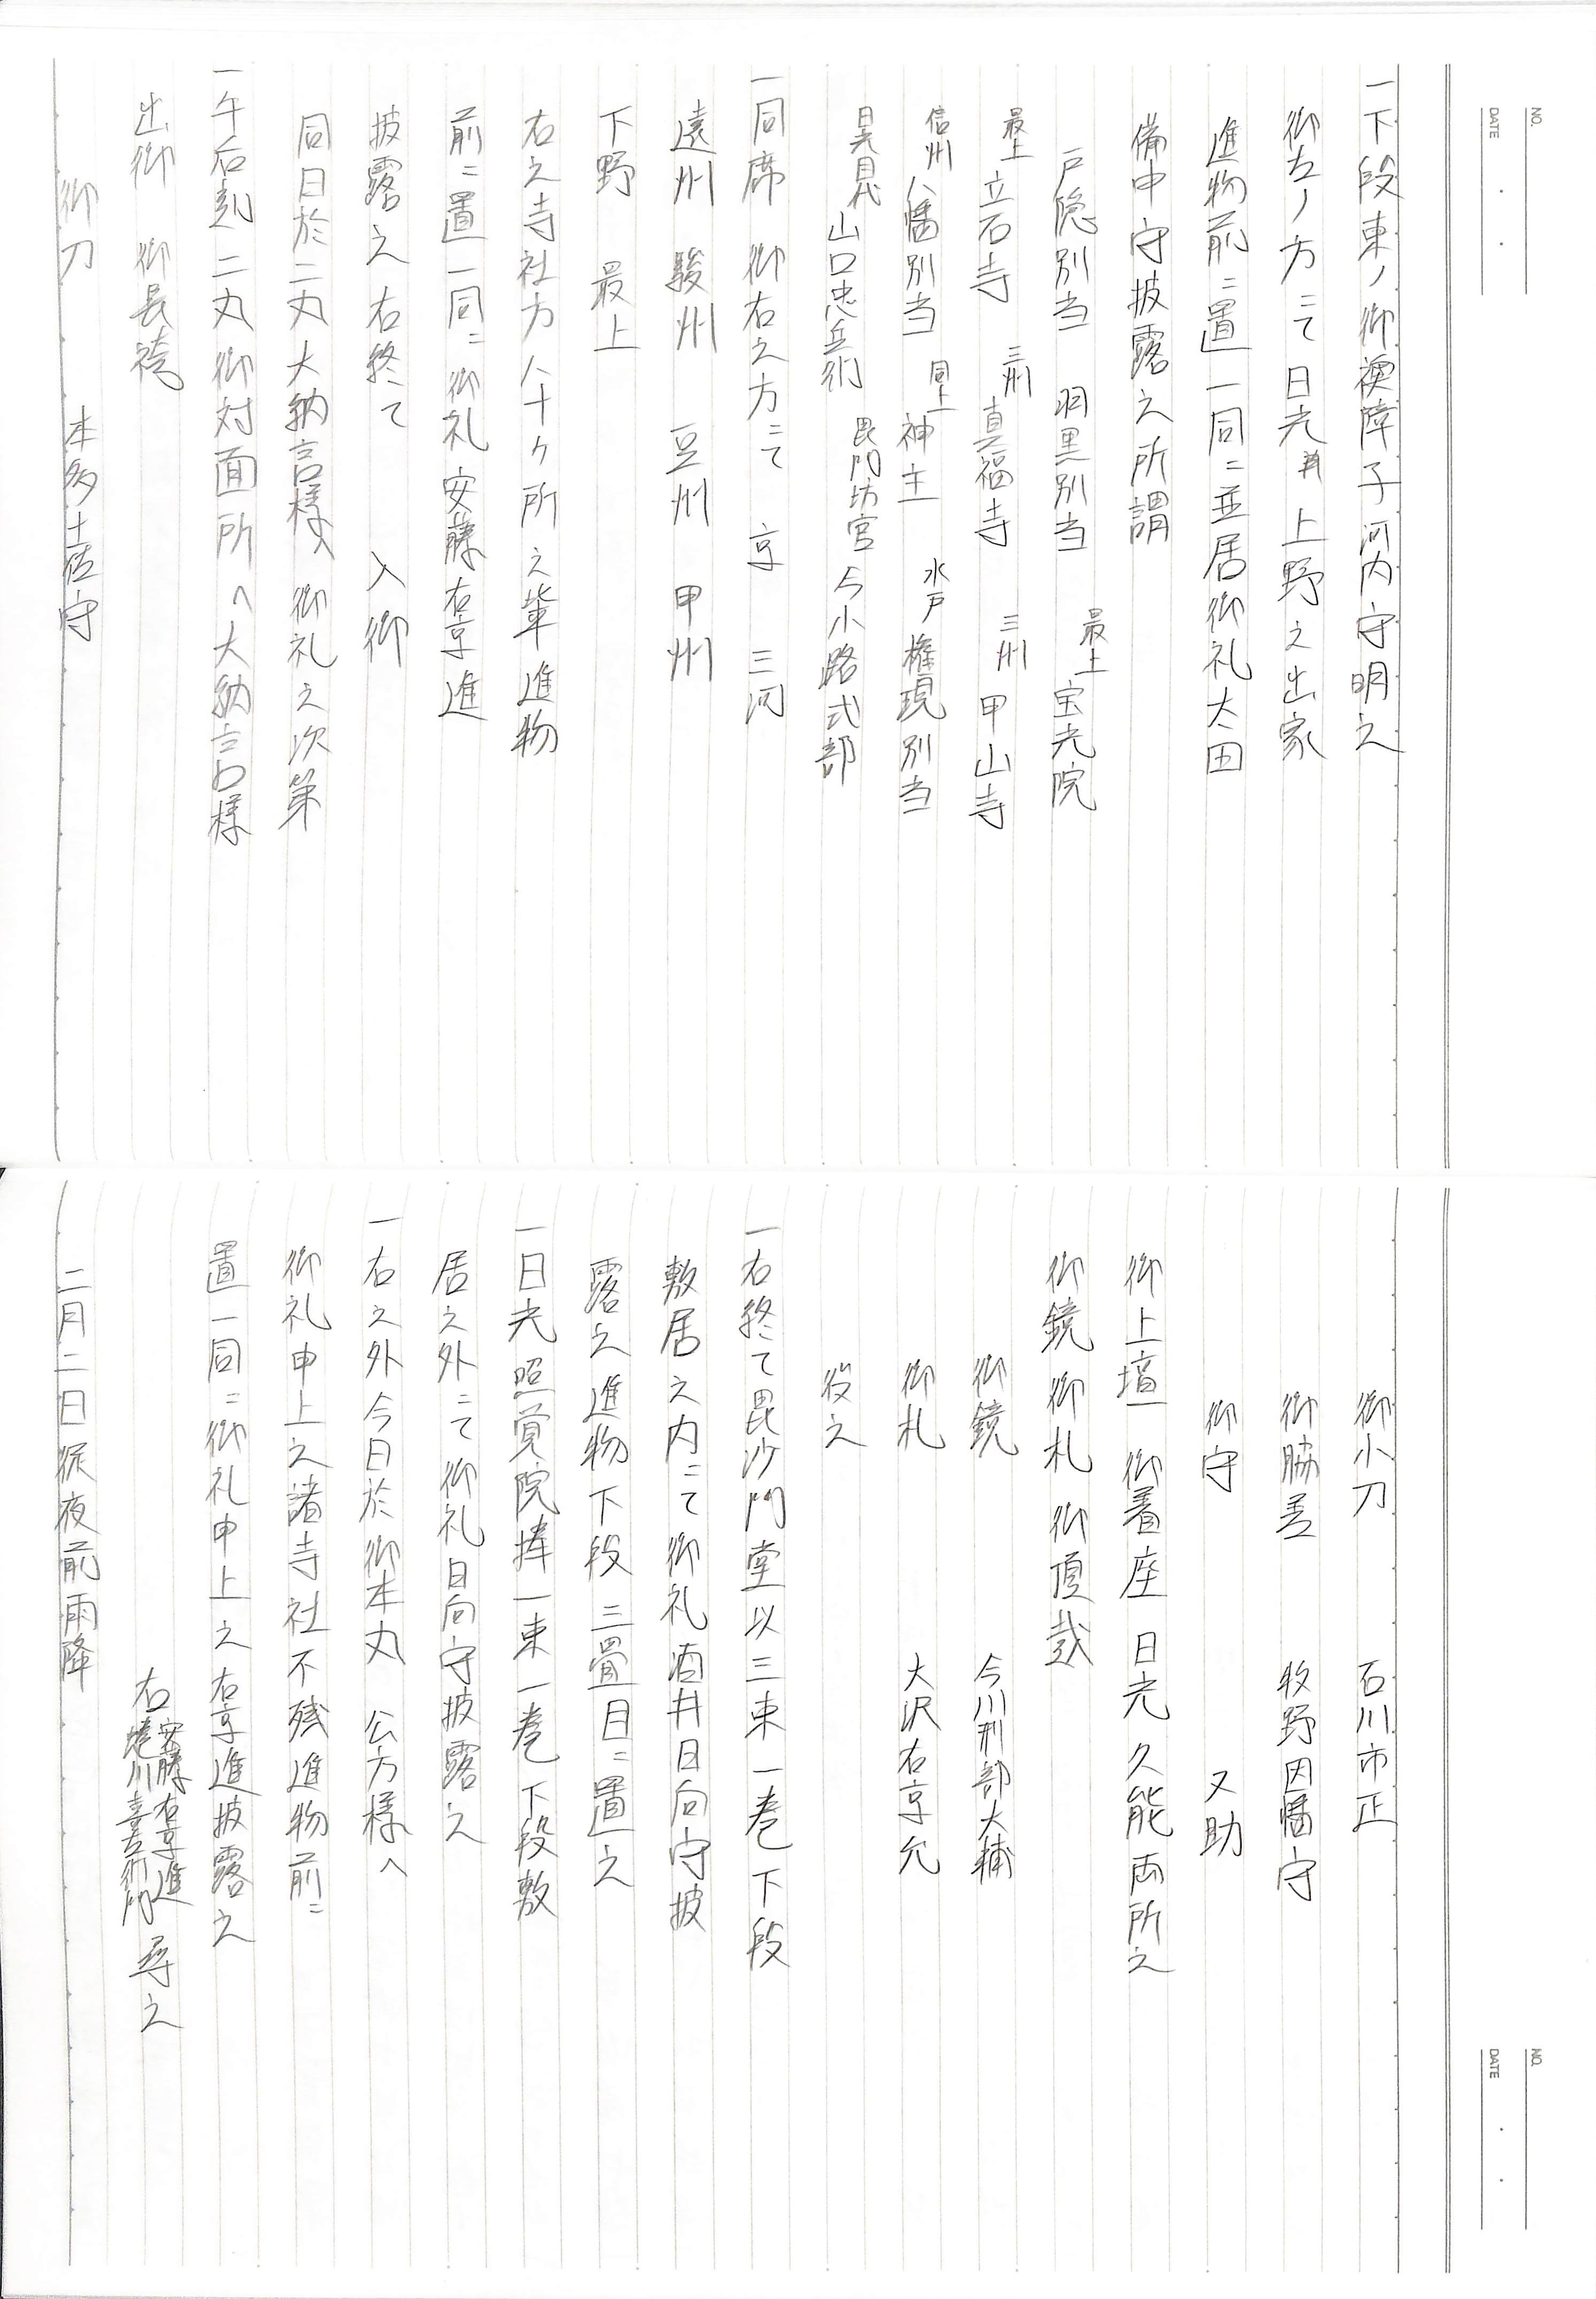 NO.
DATE
一下段東ノ御襖障子河内守明之
御左ノ方ニて日光并上野之出家
進物前ニ置一同ニ並居御礼太田
備中守披露之所謂
戸隠別当 羽黒別当 最上 宝光院
最上 立石寺 三州 真福寺 三州 甲山寺
信州 八幡別当 同上 神主 水戸 権現別当
日光目代 山口忠兵衛 毘門坊官 今小路式部
一同席 御右之方ニて 京 三河
遠州 駿州 豆州 甲州
下野 最上
右之寺社方八十ヶ所之輩進物
前ニ置一同ニ御礼安藤右京進
披露之右終て 入御
同日於二丸大納言様へ御礼之次第
一午后刻二丸御対面所へ大納言様
出御 御長袴
御刀 本多土佐守
NO.
DATE
御小刀 石川市正
御脇差 牧野因幡守
御守 又助
御上壇 御着座 日光久能両所之
御鏡御札 御頂戴
御鏡 今川刑部大輔
御札 大沢右京允
役之
一右終て毘沙門堂以三束一巻下段
敷居之内ニて御礼酒井日向守披
露之進物下段三畳目ニ置之
一日光照覚院捧一束一巻下段敷
居之外ニて御礼日向守披露之
一右之外今日於御本丸 公方様へ
御礼申上之諸寺社不残進物前ニ
置一同ニ御礼申上之右京進披露之
右 安藤右京進 蜷川喜左衛門 尋之
二月二日従夜前雨降